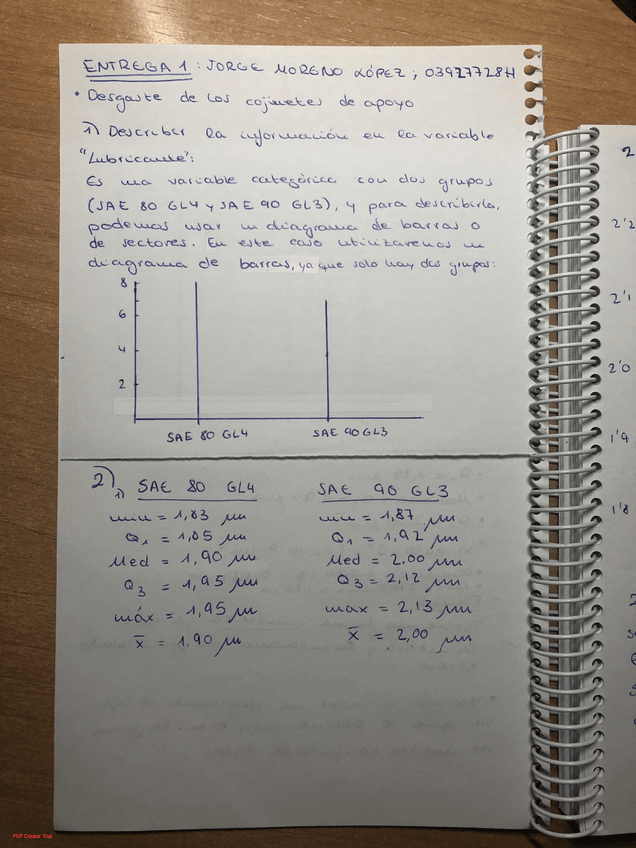 ENTREGA 1 : JORGE MORENO LÓPEZ ; 03927728H
• Desgaste de los cojinetes de apoyo
1) Describir la información en la variable
"Lubricante":
Es una variable categórica con dos grupos
(SAE 80 GL4 y SAE 90 GL3), y para describirla,
podemos usar un diagrama de barras o
de sectores. En este caso utilizaremos un
diagrama de barras, ya que solo hay dos grupos:
8
6
4
2
SAE 80 GL4 SAE 90 GL3
2) 1) SAE 80 GL4 SAE 90 GL3
min = 1,83 μm min = 1,87 μm
Q1 = 1,85 μm Q1 = 1,92 μm
Med = 1,90 μm Med = 2.00 μm
Q3 = 1,95 μm Q3 = 2,12 μm
máx = 1,95 μm max = 2,13 μm
x̄ = 1,90 μm x̄ = 2,00 μm
2
2'2
2'1
2'0
1'9
1'8
PDF Creator Trial